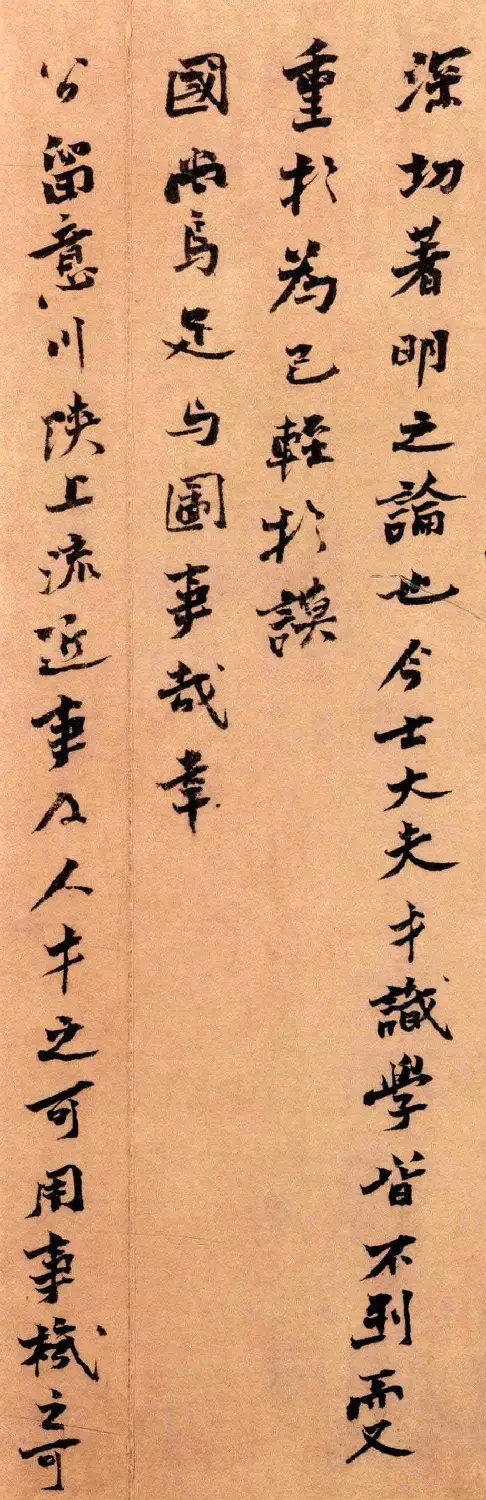 深切著明之論也今士大夫才識學皆不到而又
重於為己輕於謨
國尚烏足与圖事哉幸
公留意川陝上流近事及人才之可用事機之可